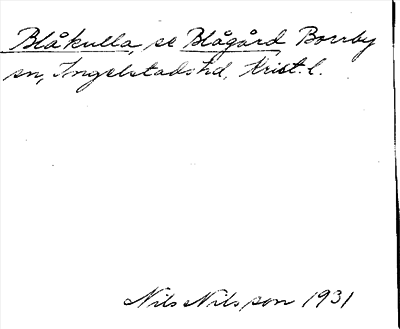 Blåkulla, se Blågård Borrby
sn, Ingelstads hd, Krist. l.
Nils Nilsson 1931